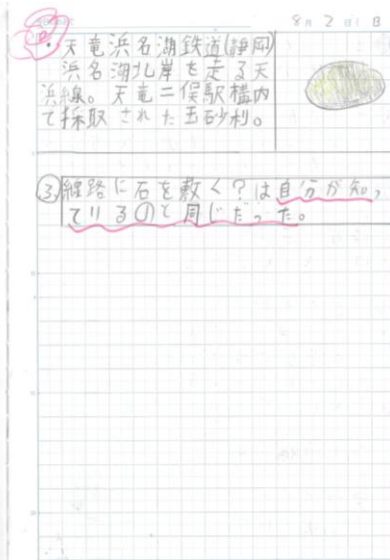 8月21日
・天竜浜名湖鉄道(静岡)
浜名湖北岸を走る天
浜線。天竜二俣駅構内
で採取された玉砂利。
③線路に石を敷く?は自分が知っ
ているのと同じだった。